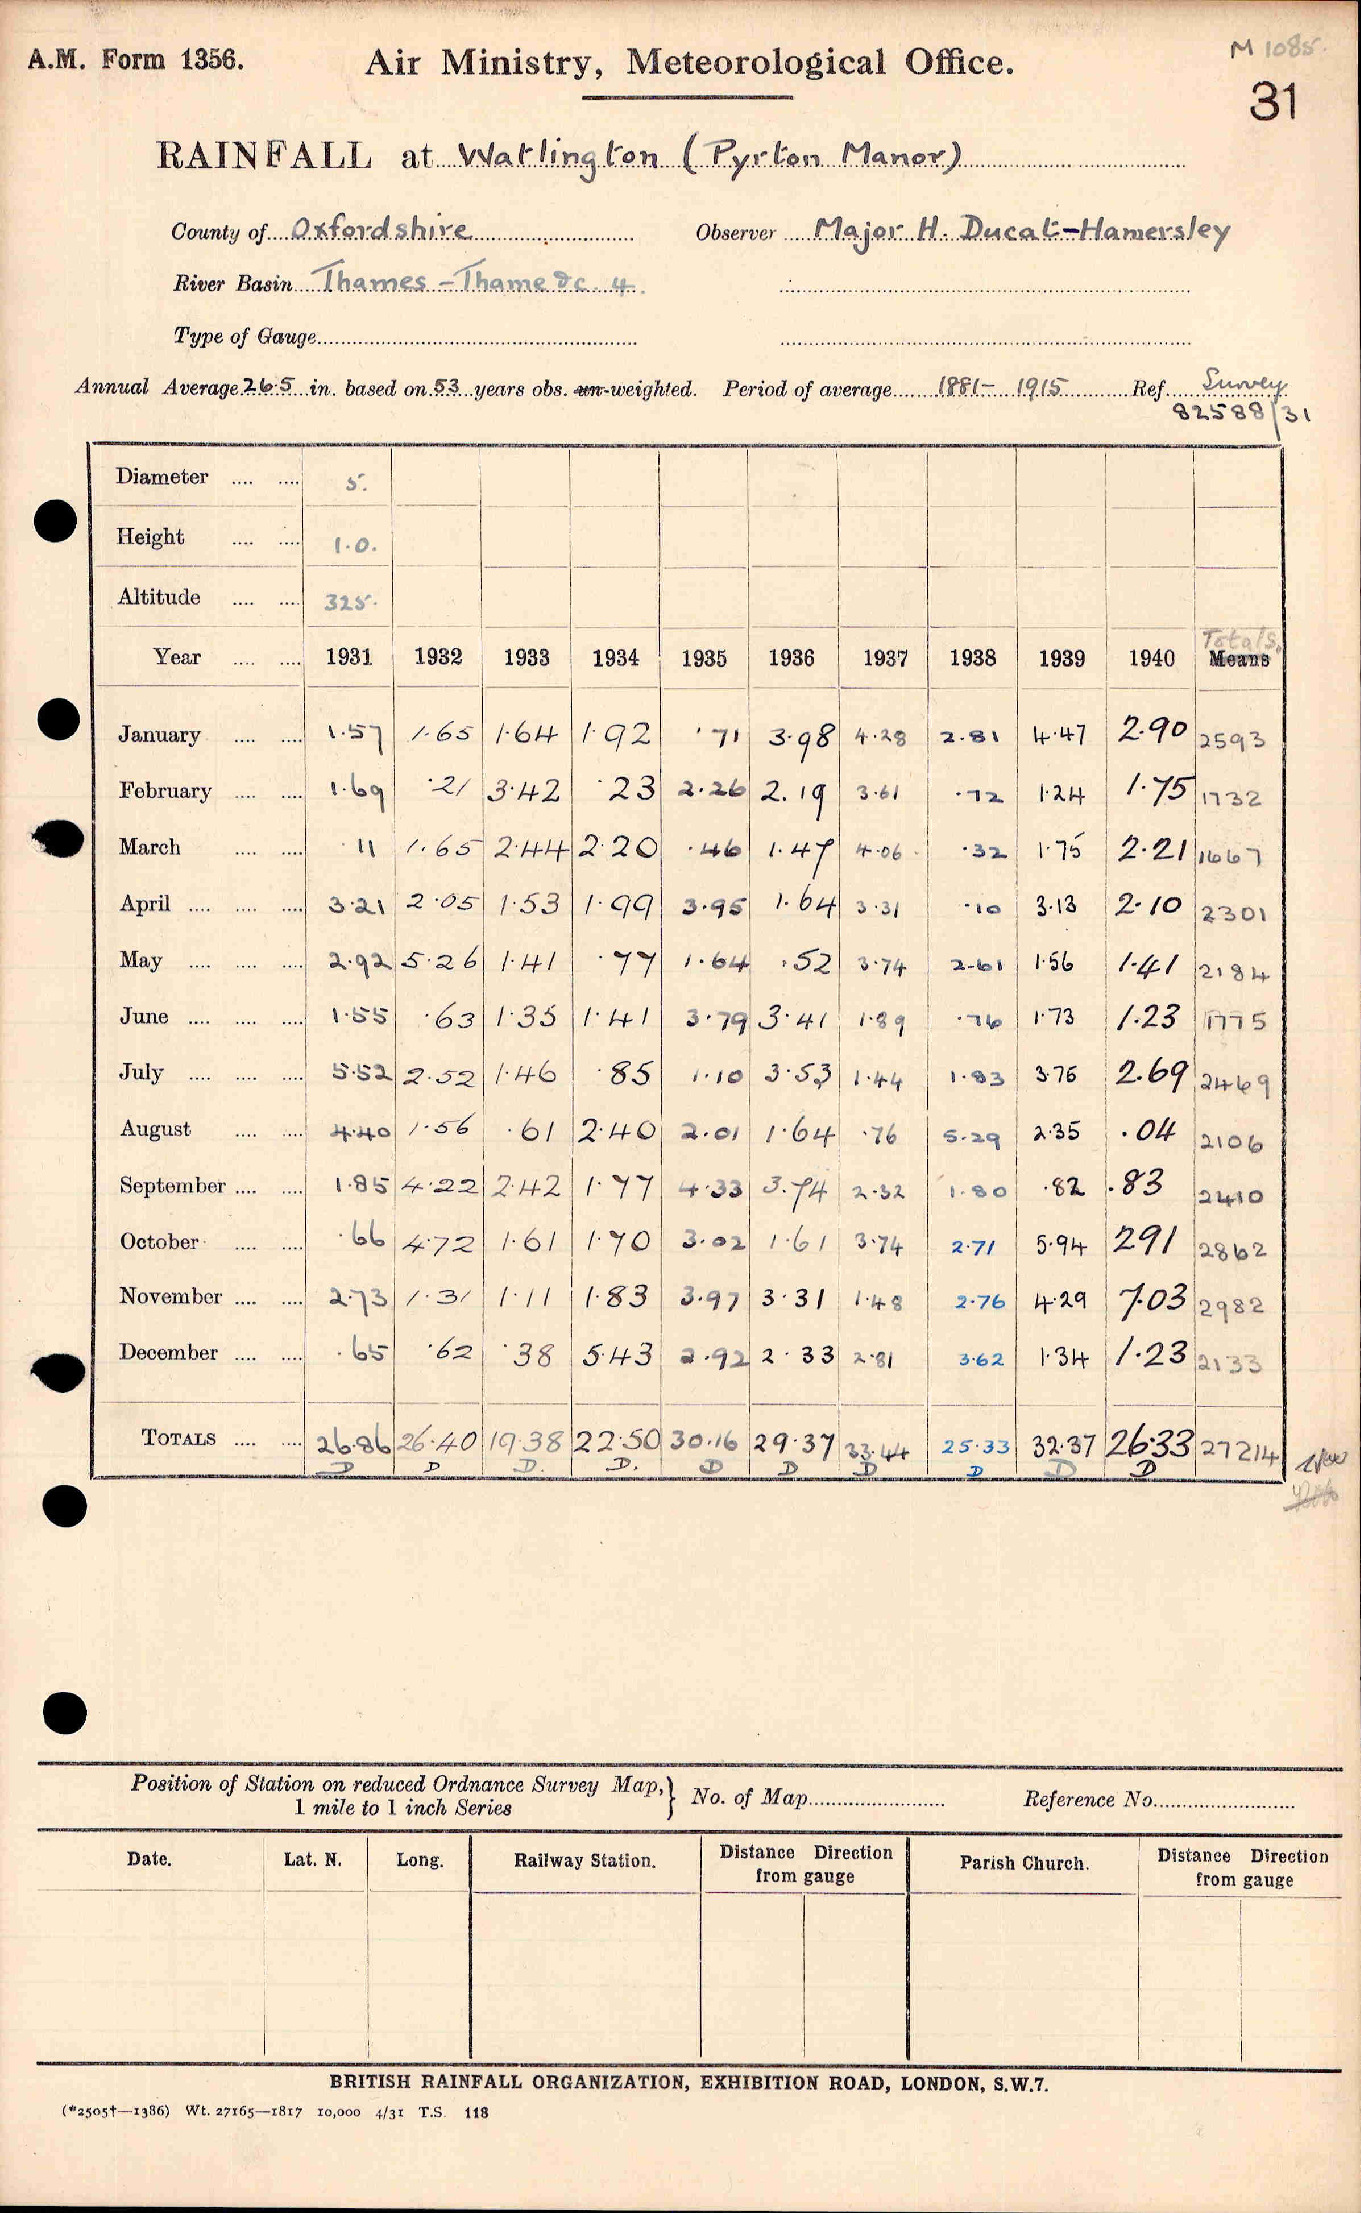 M 1085.
A.M. Form 1356. Air Ministry, Meteorological Office.
31
RAINFALL at Watlington (Pyrton Manor)
County of Oxfordshire Observer Major H. Ducat-Hamersley
River Basin Thames - Thame &c. 4.
Type of Gauge
Annual Average 26.5 in. based on 53 years obs. un-weighted. Period of average 1881- 1915 Ref. Survey
82588/31
Diameter .... .... 5.
Height .... .... 1.0.
Altitude .... .... 325.
Totals.
Year .... .... 1931 1932 1933 1934 1935 1936 1937 1938 1939 1940 Means
January .... .... 1.57 1.65 1.64 1.92 .71 3.98 4.28 2.81 4.47 2.90 2593
February .... .... 1.69 .21 3.42 .23 2.26 2.19 3.61 .72 1.24 1.75 1732
March .... .... .11 1.65 2.44 2.20 .46 1.47 4.06 .32 1.75 2.21 1667
April .... .... .... 3.21 2.05 1.53 1.99 3.95 1.64 3.31 .10 3.13 2.10 2301
May .... .... .... 2.92 5.26 1.41 .77 1.64 .52 3.74 2.61 1.56 1.41 2184
June .... .... .... 1.55 .63 1.35 1.41 3.79 3.41 1.89 .76 1.73 1.23 1775
July .... .... .... 5.52 2.52 1.46 .85 1.10 3.53 1.44 1.83 3.75 2.69 2469
August .... .... 4.40 1.56 .61 2.40 2.01 1.64 .76 5.29 2.35 .04 2106
September .... .... 1.85 4.22 2.42 1.77 4.33 3.74 2.32 1.80 .82 .83 2410
October .... .... .66 4.72 1.61 1.70 3.02 1.61 3.74 2.71 5.94 2.91 2862
November .... .... 2.73 1.31 1.11 1.83 3.97 3.31 1.48 2.76 4.29 7.03 2982
December .... .... .65 .62 .38 5.43 2.92 2.33 2.81 3.62 1.34 1.23 2133
TOTALS .... .... 26.86 26.40 19.38 22.50 30.16 29.37 33.44 25.33 32.37 26.33 27214
D D D. D. D D D D D D
Position of Station on reduced Ordnance Survey Map,} No. of Map Reference No.
1 mile to 1 inch Series
Date. Lat. N. Long. Railway Station. Distance Direction Parish Church. Distance Direction
from gauge from gauge
BRITISH RAINFALL ORGANIZATION, EXHIBITION ROAD, LONDON, S.W.7.
(*2505†—1386) Wt. 27165—1817 10,000 4/31 T.S. 118